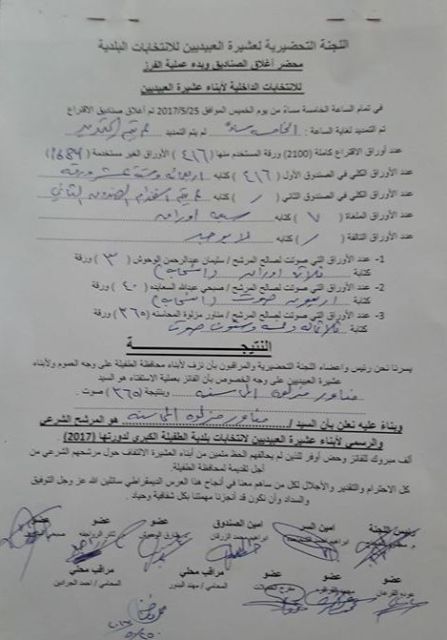 اللجنة التحضيرية لعشيرة العبيديين للانتخابات البلدية
محضر أغلاق الصناديق وبدء عملية الفرز
للانتخابات الداخلية لأبناء عشيرة العبيديين
في تمام الساعة الخامسة مساءً من يوم الخميس الموافق 2017/5/25 تم أغلاق صناديق الاقتراع
تم التمديد لغاية الساعة : الخامسة مساءً لم يتم التمديد لم يتم التمديد
عدد أوراق الاقتراع كاملة (2100) ورقة المستخدم منها (٤١٦) الأوراق الغير مستخدمة (١٦٨٤)
عدد الأوراق الكلي في الصندوق الأول (٤١٦) كتابة اربعمائة وستة عشر ورقة
عدد الأوراق الكلي في الصندوق الثاني ( / ) كتابة لم يتم استخدام الصندوق الثاني
عدد الأوراق الملغاة (٧) كتابة سبعة اوراق
عدد الأوراق التالفة ( / ) كتابة لا يوجد
1- عدد الأوراق التي صوتت لصالح المرشح / سليمان عبدالرحمن الوحوش (٣) ورقة
كتابة ثلاثة اوراق (انسحاب)
2- عدد الأوراق التي صوتت لصالح المرشح / صبحي عبدالله السعايده (٤٠) ورقة
كتابة اربعون صوت (انسحاب)
3- عدد الأوراق التي صوتت لصالح المرشح / مناور مزلوة المحاسنه (٣٦٥) ورقة
كتابة ثلاثمائة وخمسة وستون صوت
النتيجة
يسرنا نحن رئيس واعضاء اللجنة التحضيرية والمراقبون بأن نزف لأبناء محافظة الطفيلة على وجه العموم ولأبناء
عشيرة العبيديين على وجه الخصوص بأن الفائز بعملية الاستفتاء هو السيد
مناور مزلوه المحاسنه وبنتيجة (٣٦٥) صوت .
وبناءً عليه نعلن بأن السيد / مناور مزلوه المحاسنه هو المرشح الشرعي
والرسمي لأبناء عشيرة العبيديين لانتخابات بلدية الطفيلة الكبرى لدورتها (2017)
ألف مبروك للفائز وحض أوفر للذين لم يحالفهم الحظ متمنين من أبناء العشيرة الالتفاف حول مرشحهم الشرعي من
أجل تقدمية لمحافظة الطفيلة.
كل الاحترام والتقدير والأجلال لكل من ساهم معنا في أنجاح هذا العرس الديمقراطي سائلين الله عز وجل التوفيق
والسداد وأن نكون قد أنجزنا مهمتنا بكل شفافية وحياد .
رئيس اللجنة امين السر امين الصندوق عضو عضو عضو
عضو عضو عضو مراقب محلي مراقب محلي
المحامي / مهند البدور المحامي / احمد الجرادين